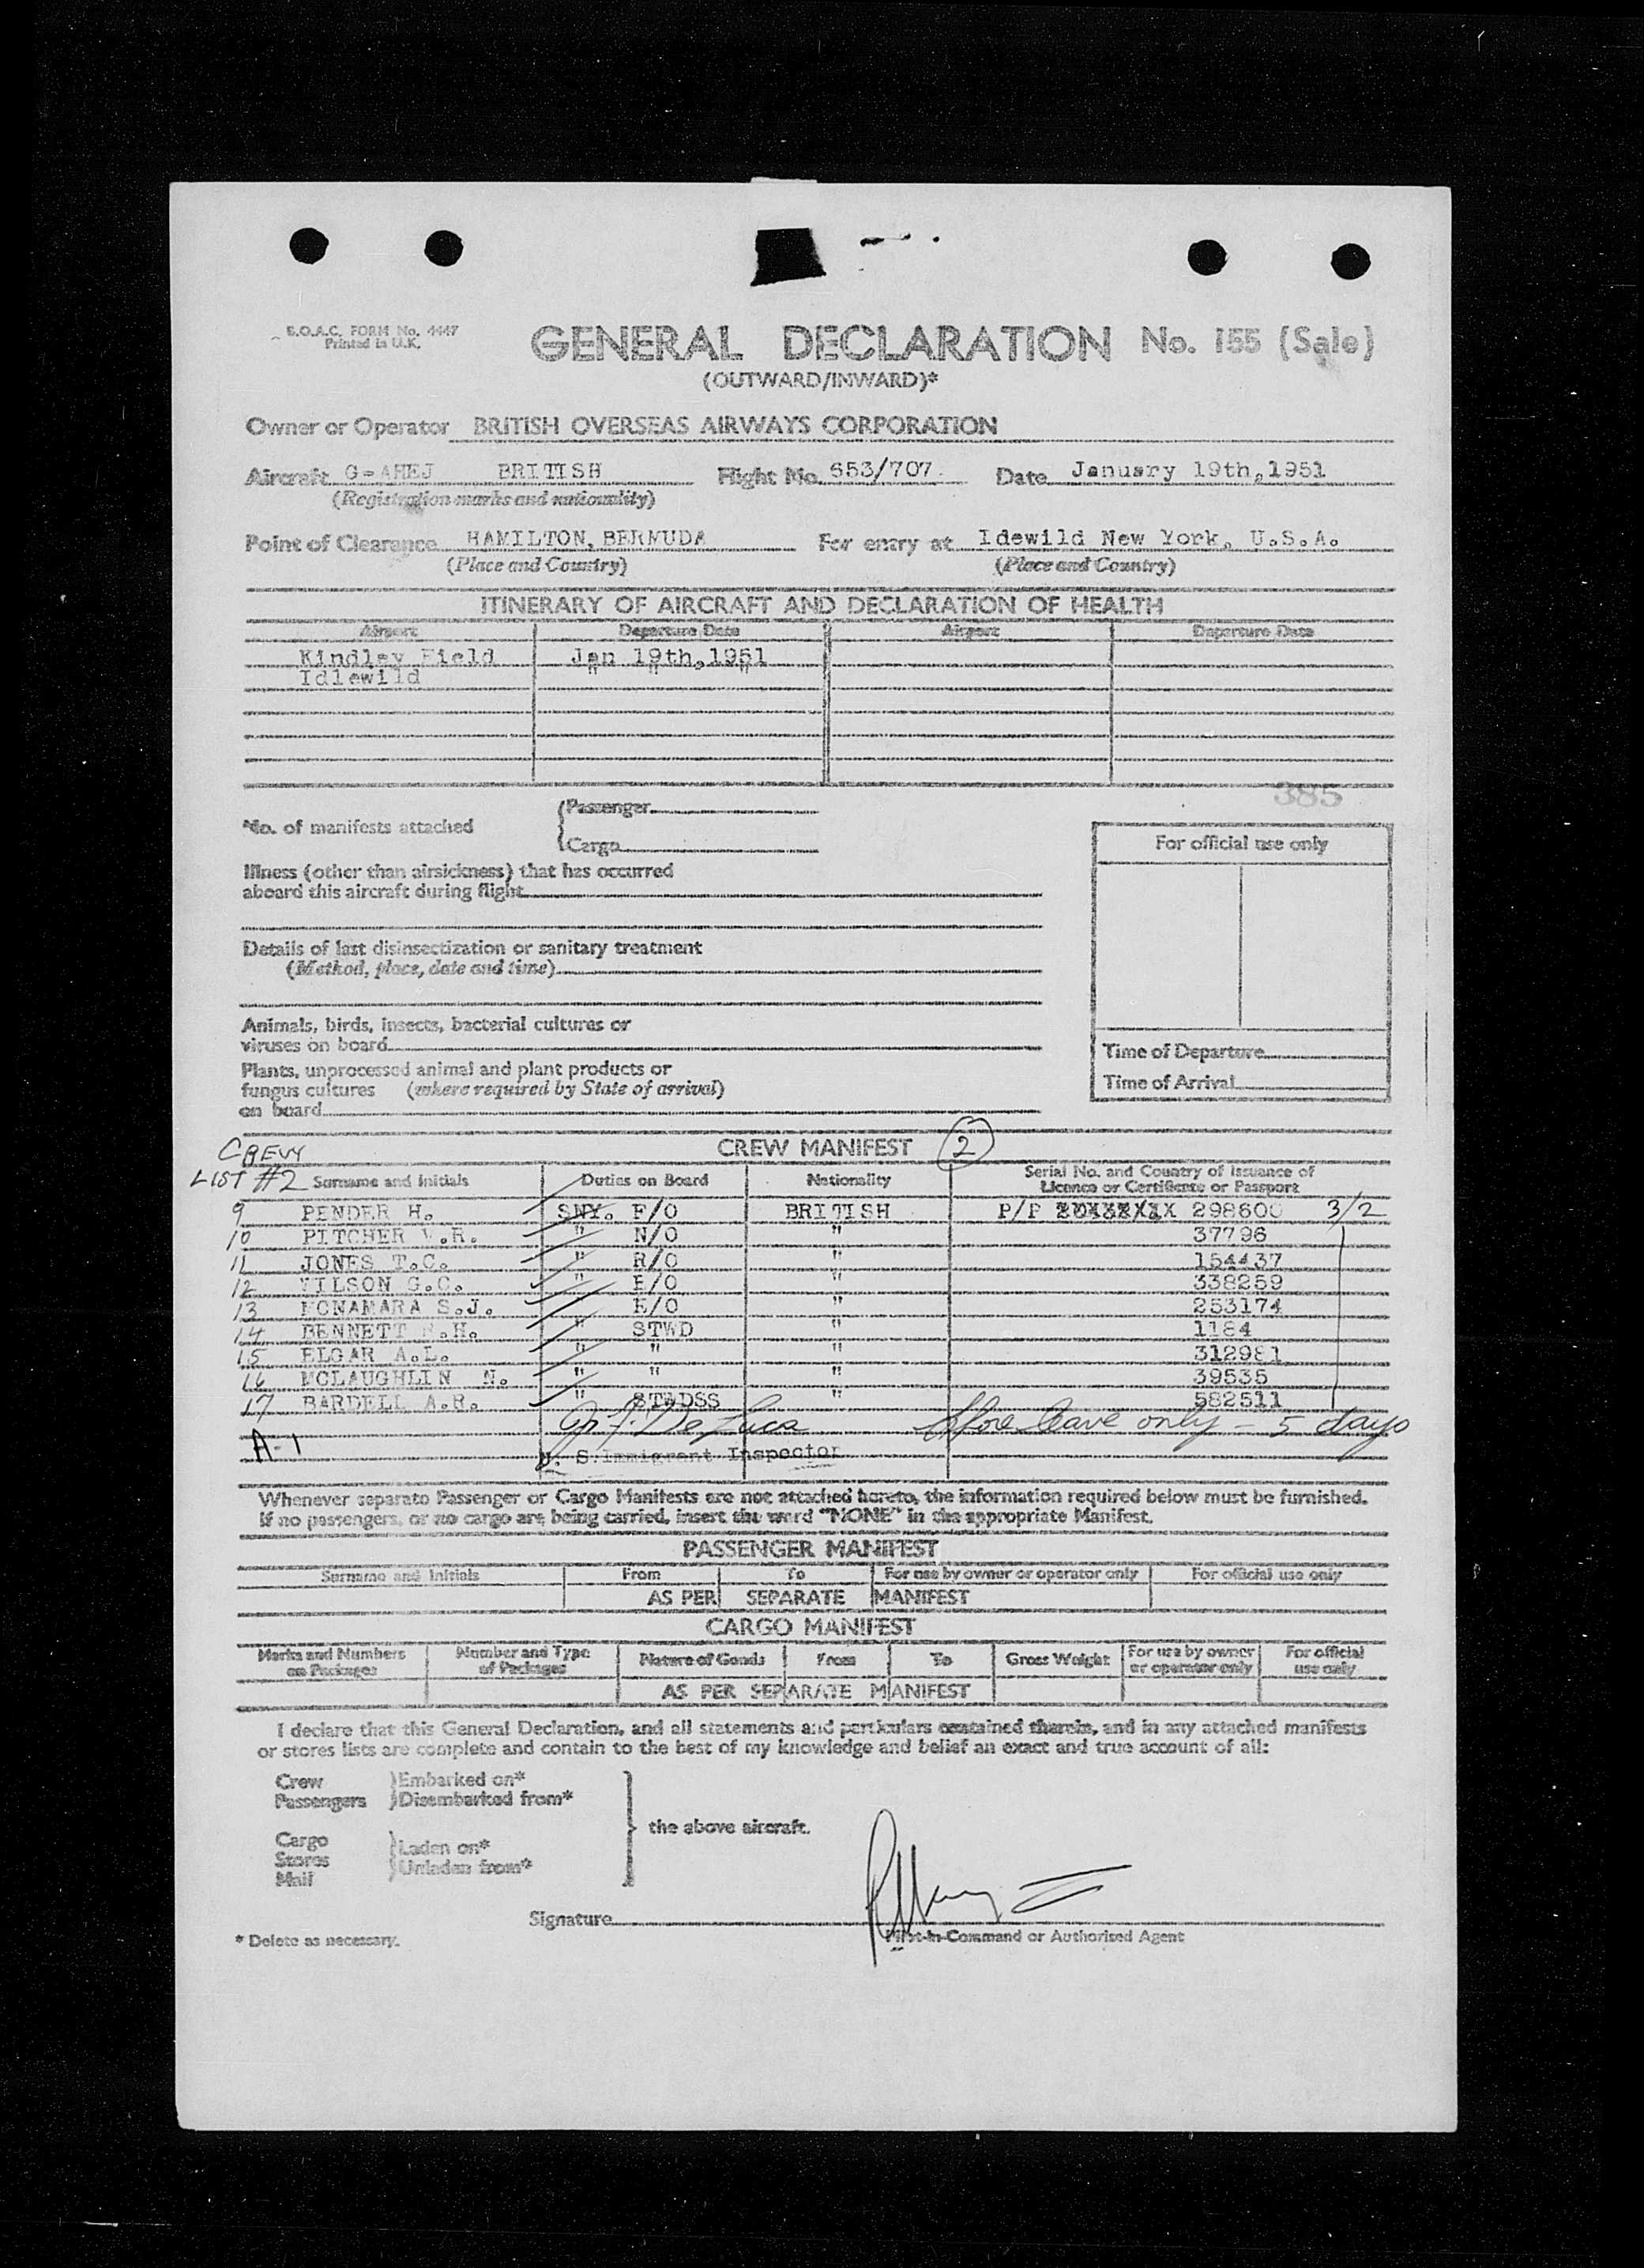 B.O.A.C. FORM No. 4447
Printed in U.K.
GENERAL DECLARATION No. 155 (Sale)
(OUTWARD/INWARD)*
Owner or Operator BRITISH OVERSEAS AIRWAYS CORPORATION
Aircraft G-AHEJ BRITISH Flight No. 653/707. Date January 19th,1951
(Registration marks and nationality)
Point of Clearance HAMILTON, BERMUDA For entry at Idewild New York, U.S.A.
(Place and Country) (Place and Country)
ITINERARY OF AIRCRAFT AND DECLARATION OF HEALTH
Airport Departure Date Airport Departure Date
Kindley Field Jan 19th,1951
Idlewild " " "
385
*No. of manifests attached
Passenger
Cargo
For official use only
Illness (other than airsickness) that has occurred
aboard this aircraft during flight
Details of last disinsectization or sanitary treatment
(Method, place, date and time)
Animals, birds, insects, bacterial cultures or
viruses on board
Time of Departure
Plants, unprocessed animal and plant products or
fungus cultures (where required by State of arrival)
on board
Time of Arrival
CREW MANIFEST 2
CREW
LIST #2
Surname and Initials Duties on Board Nationality Serial No. and Country of Issuance of
Licence or Certificate or Passport
9 PENDER H. SNY. F/O BRITISH P/P 298600 3/2
10 PITCHER V.R. " N/O " 37796
11 JONES T.C. " R/O " 154437
12 WILSON G.C. " E/O " 338259
13 MCNAMARA S.J. E/O " 253174
14 BENNETT .H. " STWD " 1184
15 ELGAR A.L. " " " 312981
16 MCLAUGHLIN N. " " " 39535
17 BARDELL A.R. " STWDSS " 582511
De Luca Shore leave only - 5 days
A-1
U. S. Immigrant Inspector
Whenever separate Passenger or Cargo Manifests are not attached hereto, the information required below must be furnished.
If no passengers, or no cargo are being carried, insert the word "NONE" in the appropriate Manifest.
PASSENGER MANIFEST
Surname and Initials From To For use by owner or operator only For official use only
AS PER SEPARATE MANIFEST
CARGO MANIFEST
Marks and Numbers on Packages Number and Type of Packages Nature of Goods From To Gross Weight For use by owner or operator only For official use only
AS PER SEPARATE MANIFEST
I declare that this General Declaration, and all statements and particulars contained therein, and in any attached manifests
or stores lists are complete and contain to the best of my knowledge and belief an exact and true account of all:
Crew Embarked on*
Passengers Disembarked from*
the above aircraft.
Cargo Laden on*
Stores Unladen from*
Mail
Signature
Pilot-in-Command or Authorised Agent
* Delete as necessary.